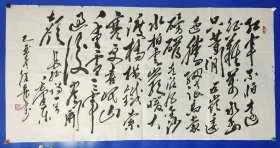 红军不怕远
征难万水千山
只等闲五岭逶
迤腾细浪乌蒙
磅礴走泥丸金沙
水拍云崖暖大
渡桥横铁索
寒更喜岷山
千里雪三军
过后尽开
颜